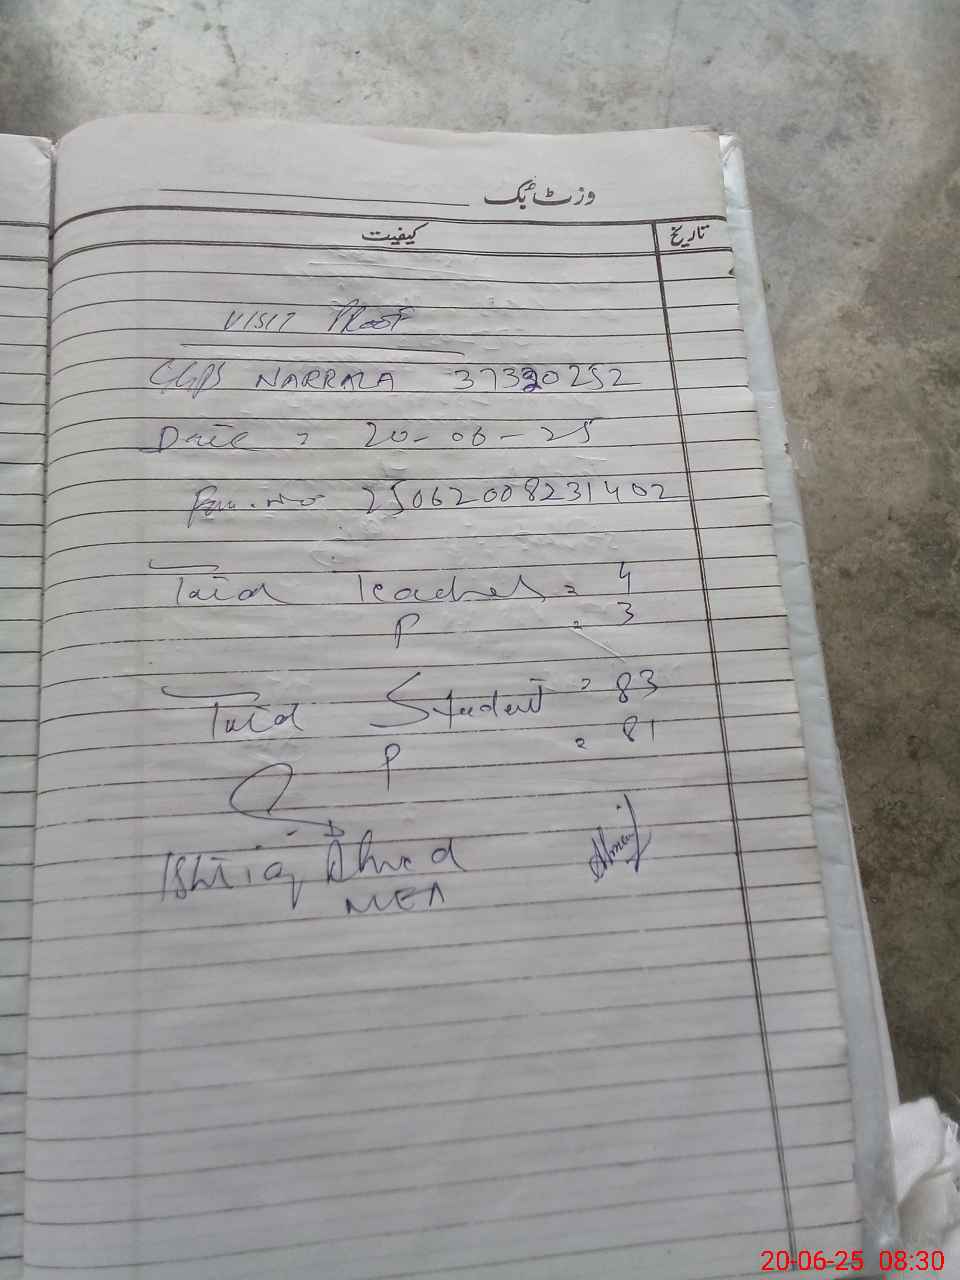 وزٹ بُک
کیفیت تاریخ
VISIT PROOF
GGPS NARRALA 37320252
Date = 20-06-25
No 25062008231402
Total Teacher = 4
P = 3
Total Student = 83
P = 81
Ishtiaq Ahmed
MEA
20-06-25 08:30